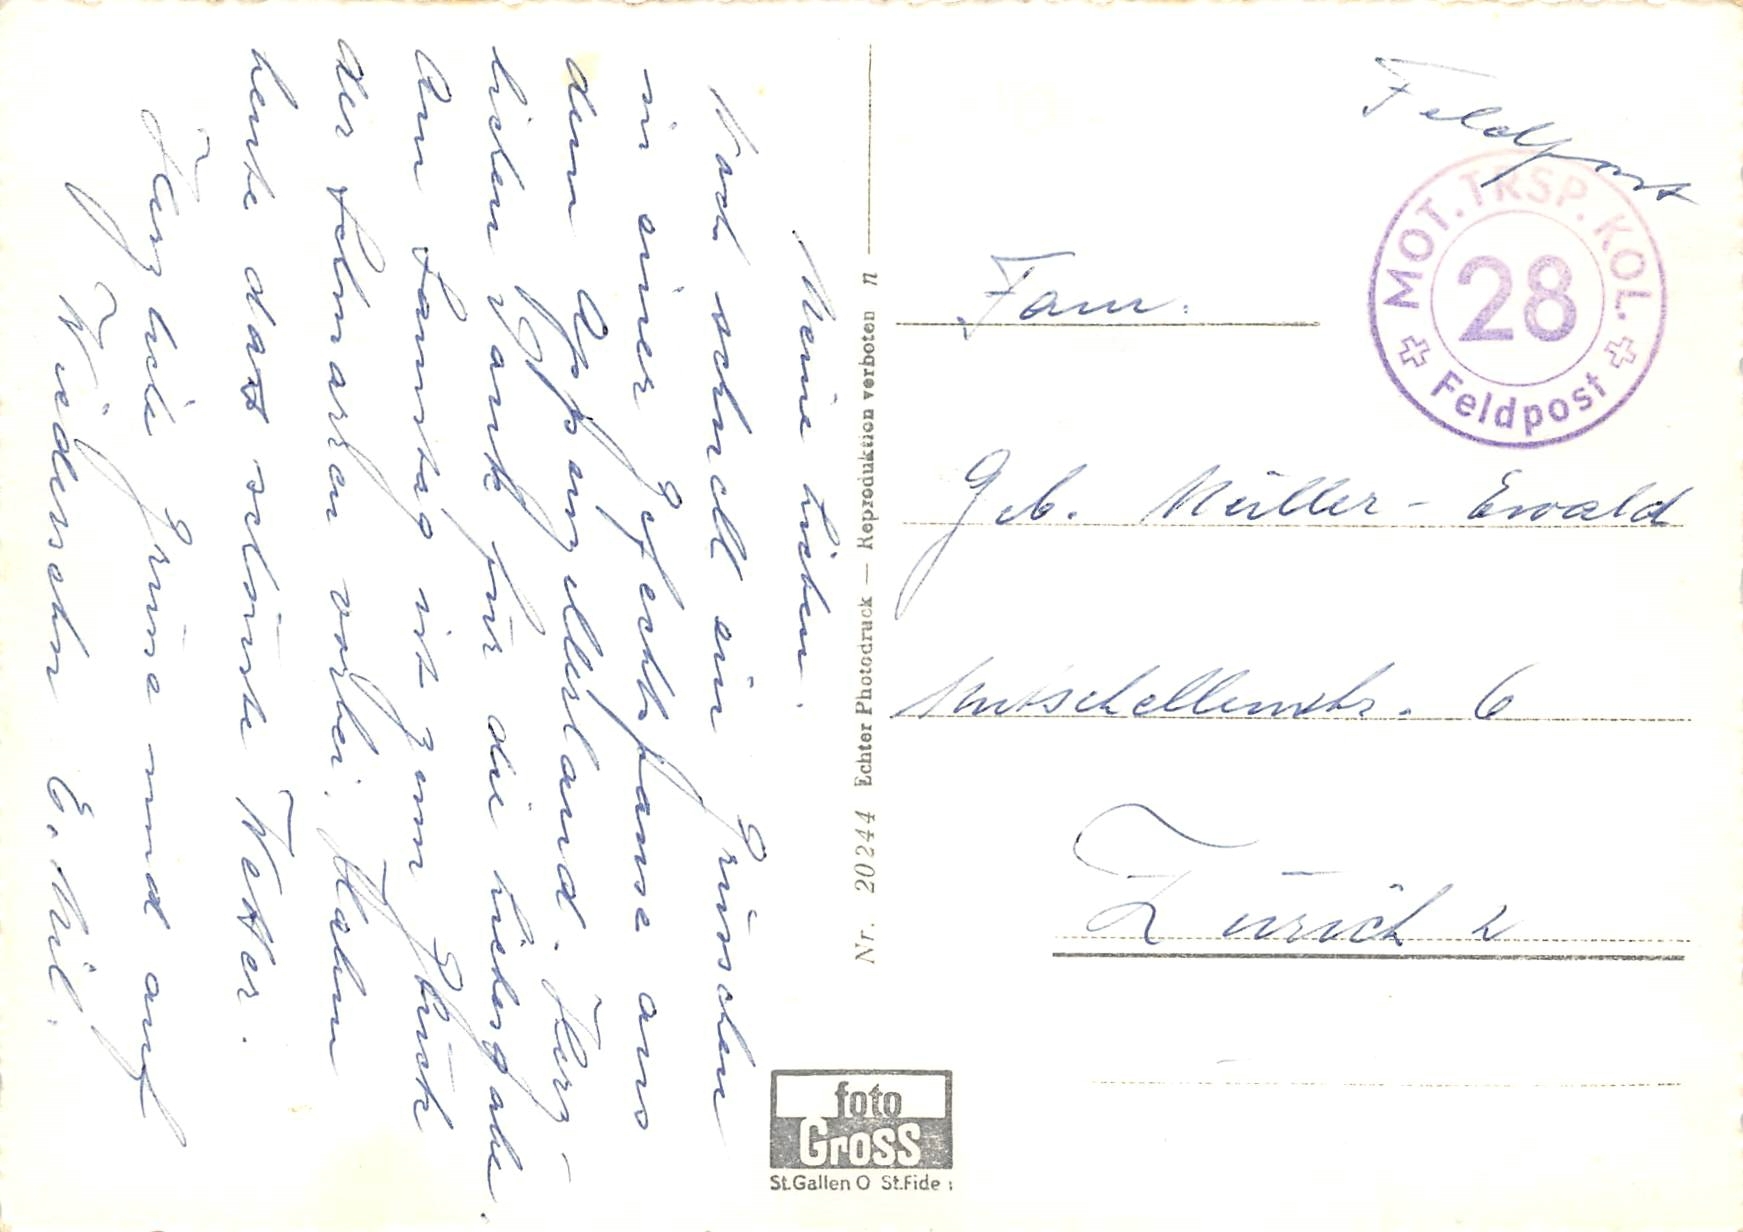 Meine Lieben.
Noch schnell ein Grüsschen
in einer Gefechtspause aus
dem Appenzellerland. Herz-
lichen Dank für die Liebesgabe.
Am Samstag ist zum Glück
der Schmarren vorbei. Haben
heute das schönste Wetter.
Herzliche Grüsse und auf
Wiedersehn E. Mil.
Nr. 20244 Echter Photodruck — Reproduktion verboten n
Feldpost
MOT. TRSP. KOL.
28
Feldpost
Fam.
Geb. Müller - Ewald
Mutschellenstr. 6
Zürich 2
foto
Gross
St.Gallen O St.Fide